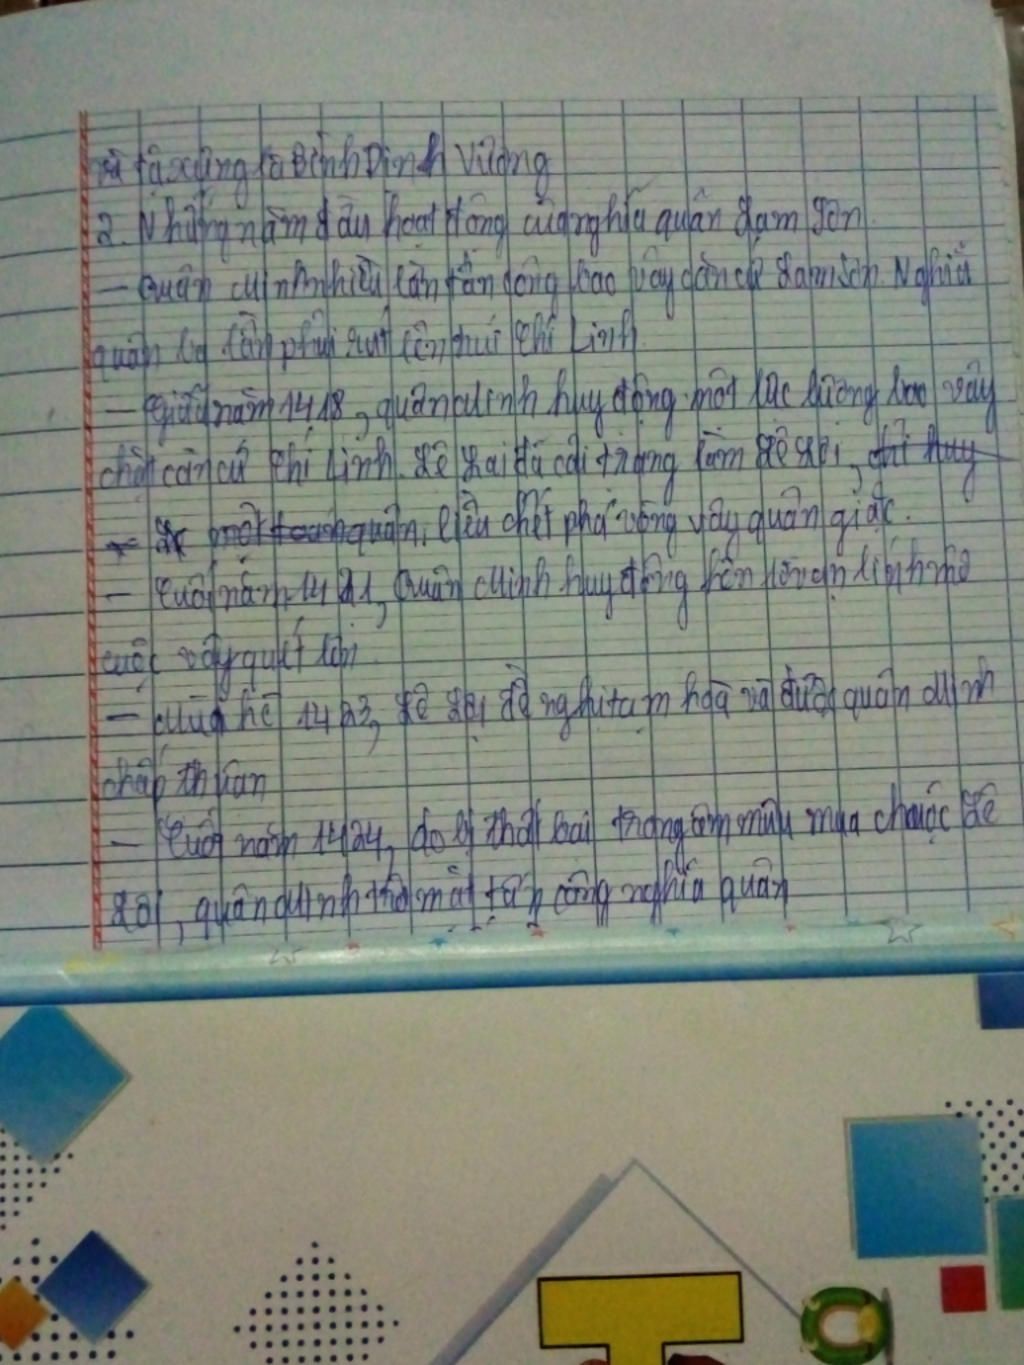 và tự xưng là Bình Định Vương
2. Những năm đầu hoạt động của nghĩa quân Lam Sơn.
- Quân Minh nhiều lần tấn công bao vây căn cứ Lam Sơn. Nghĩa
quân ba lần phải rút lên núi Chí Linh.
- Giữa năm 1418, quân Minh huy động một lực lượng bao vây
chặt căn cứ Chí Linh. Lê Lai đã cải trang làm Lê Lợi, chỉ huy
một toán quân, liều chết phá vòng vây quân giặc.
- Cuối năm 1421, Quân Minh huy động hơn lính mở
cuộc vây quét lớn.
- Mùa hè 1423, Lê Lợi đề nghị tạm hoà và được quân Minh
chấp thuận
- Cuối năm 1424, do bị thất bại trong âm mưu mua chuộc Lê
Lợi, quân Minh trở mặt tấn công nghĩa quân